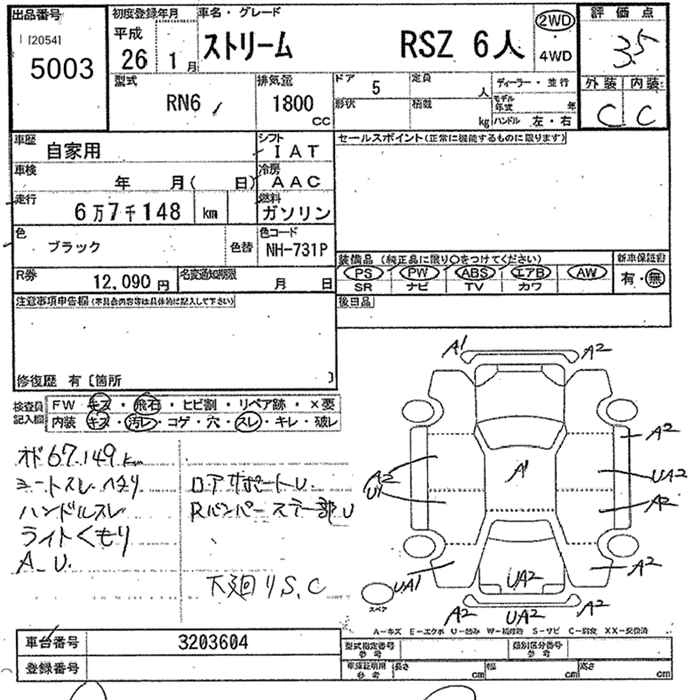 出品番号
[2054]
5003
初度登録年月
平成
26 1月
車名・グレード
ストリーム RSZ 6人
2WD
4WD
評価点
3.5
外装 内装
C C
型式
RN6
排気量
1800
CC
ドア 5
形状
定員 人
積載 kg
ディーラー・並行
モデル年式 年
ハンドル 左・右
車歴
自家用
シフト
IAT
車検
年 月( 日)
冷房
AAC
走行
6万7千148 km
燃料
ガソリン
色
ブラック
色替
色コード
NH-731P
R券
12,090円
名変通知期限
月 日
セールスポイント(正常に機能するものに限ります)
装備品 (純正品に限り○をつけてください)
PS PW ABS エアB AW
SR ナビ TV カワ
新車保証書
有・無
後日品
注意事項申告欄(車具合内容等は具体的に記入して下さい)
修復歴 有〔箇所 〕
検査員記入欄
FW キズ・飛石・ヒビ割・リペア跡・×要
内装 キズ・汚レ・コゲ・穴・スレ・キレ・破レ
オド67.149km
シートスレ ヘタリ
ハンドルスレ
ライトくもり
A_U.
ロアサポートU.
Rバンパーステー部U
下廻りS,C
A1 A2
A2
A2
U1
A1
UA2
A2
UA1
UA2
A2
A2 UA2 A2
スペア
A-キズ E-エクボ U-凹み W-補修跡 S-サビ C-腐食 XX-交換済
車台番号 3203604
登録番号
型式指定番号
参考
類別区分番号
参考
車庫証明用
参考
長さ cm
幅 cm
高さ cm